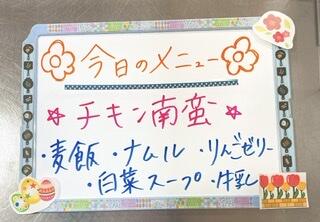 今日のメニュー
☆チキン南蛮☆
・麦飯 ・ナムル ・りんごゼリー
・白菜スープ ・牛乳